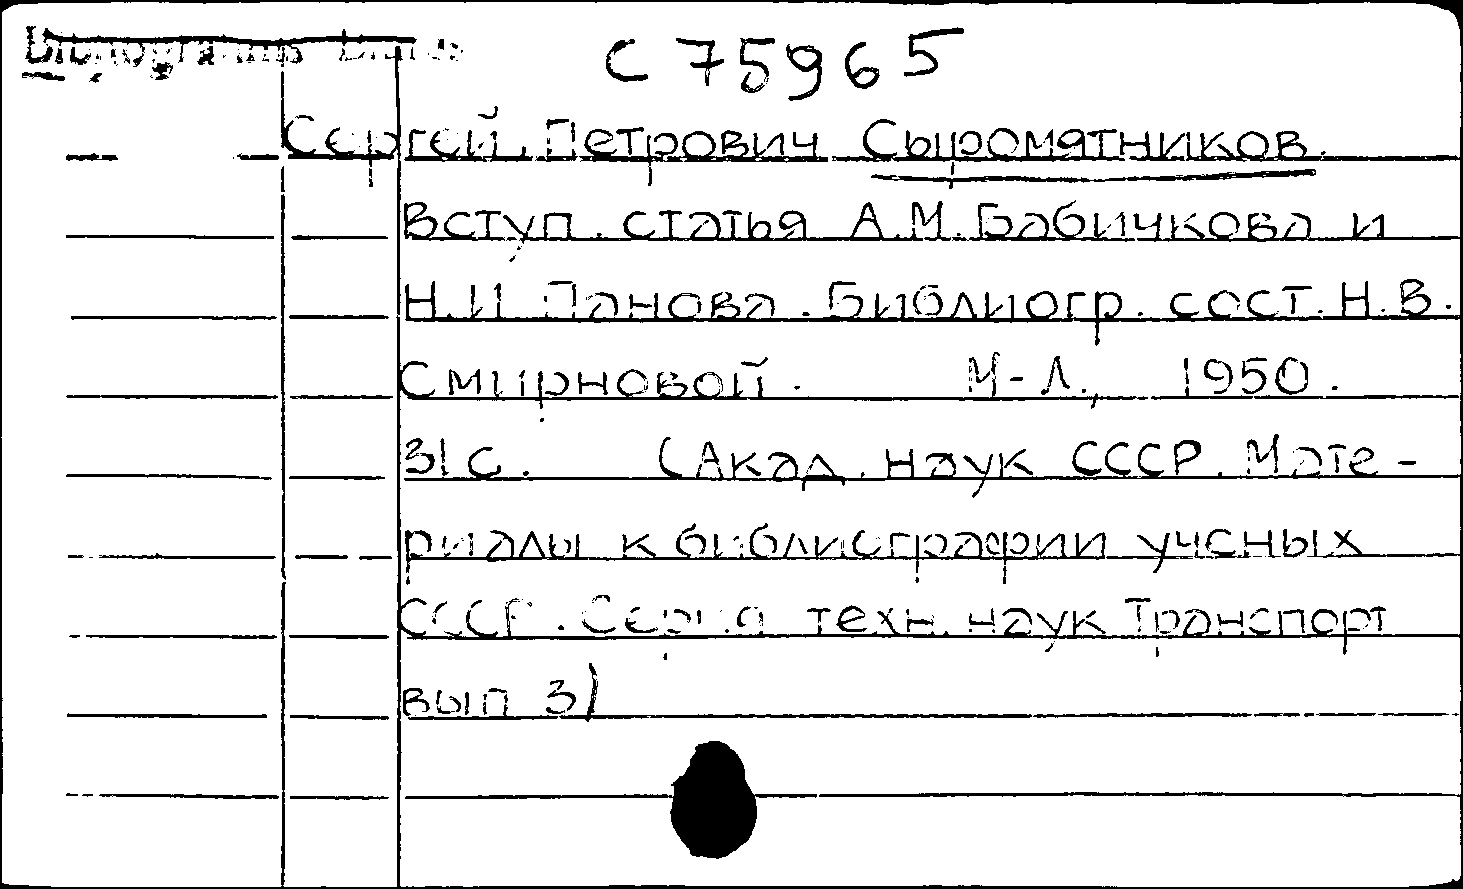 С 75965
Сергей Петрович Сыромятников.
Вступ. статья А.М. Бабичкова и
Н.И Панова. Библиогр. сост. Н.В.
Смирновой. М-Л., 1950.
31 с. (Акад. наук СССР. Мате-
риалы к библиографии ученых
СССР. Серия техн. наук Транспорт
вып 3)